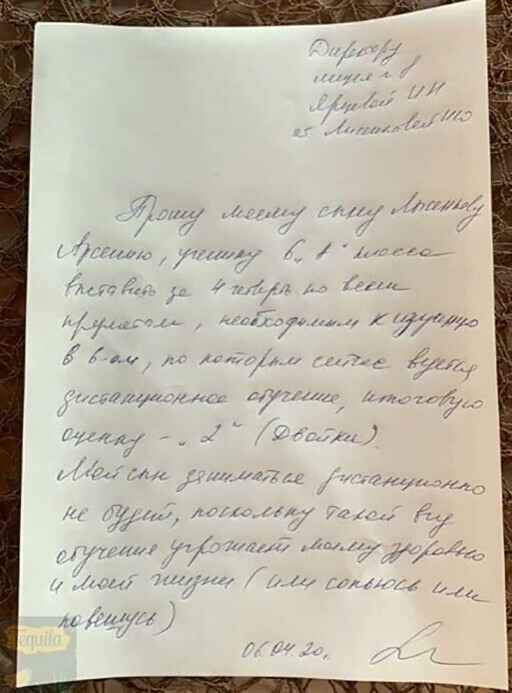 Директору
лицея № 8
Ярцевой И Н
от Лысенковой Н Ю
Прошу моему сыну Лысенкову
Арсению, ученику 6 „А" класса
выставить за 4 четверть по всем
предметам, необходимым к изучению
в 6-ом, по которым сейчас ведется
дистанционное обучение, итоговую
оценку - „2" (Двойки).
Мой сын заниматься дистанционно
не будет, поскольку такой вид
обучения угрожает моему здоровью
и моей жизни (или сопьюсь или
повешусь)
06.04.20г.
Tequila